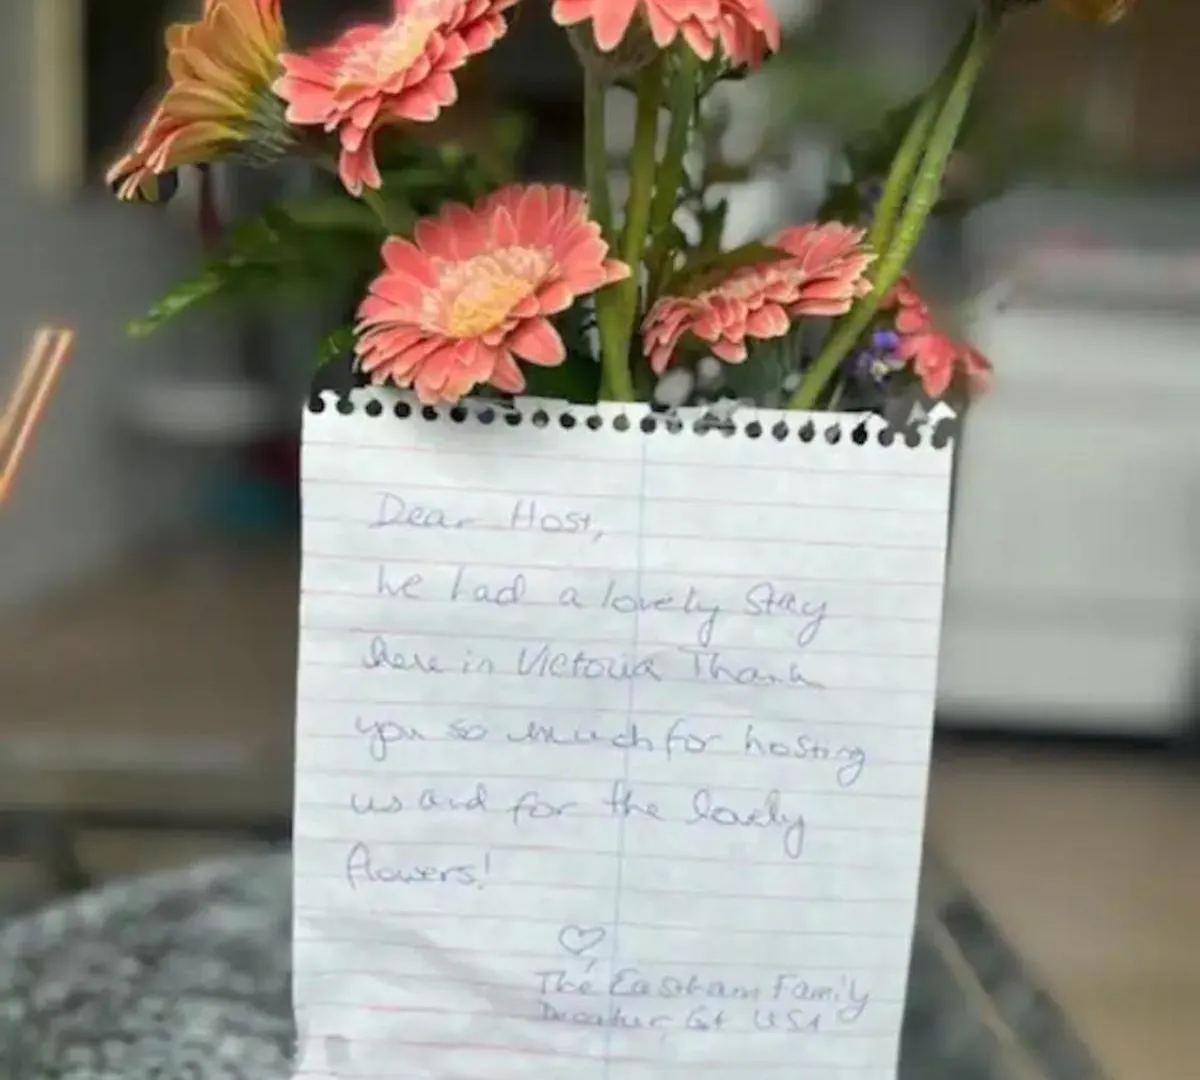 Dear Host,
We had a lovely stay
here in Victoria Thank
you so much for hosting
us and for the lovely
flowers!
♡,
The Eastham Family
Decatur, GA USA